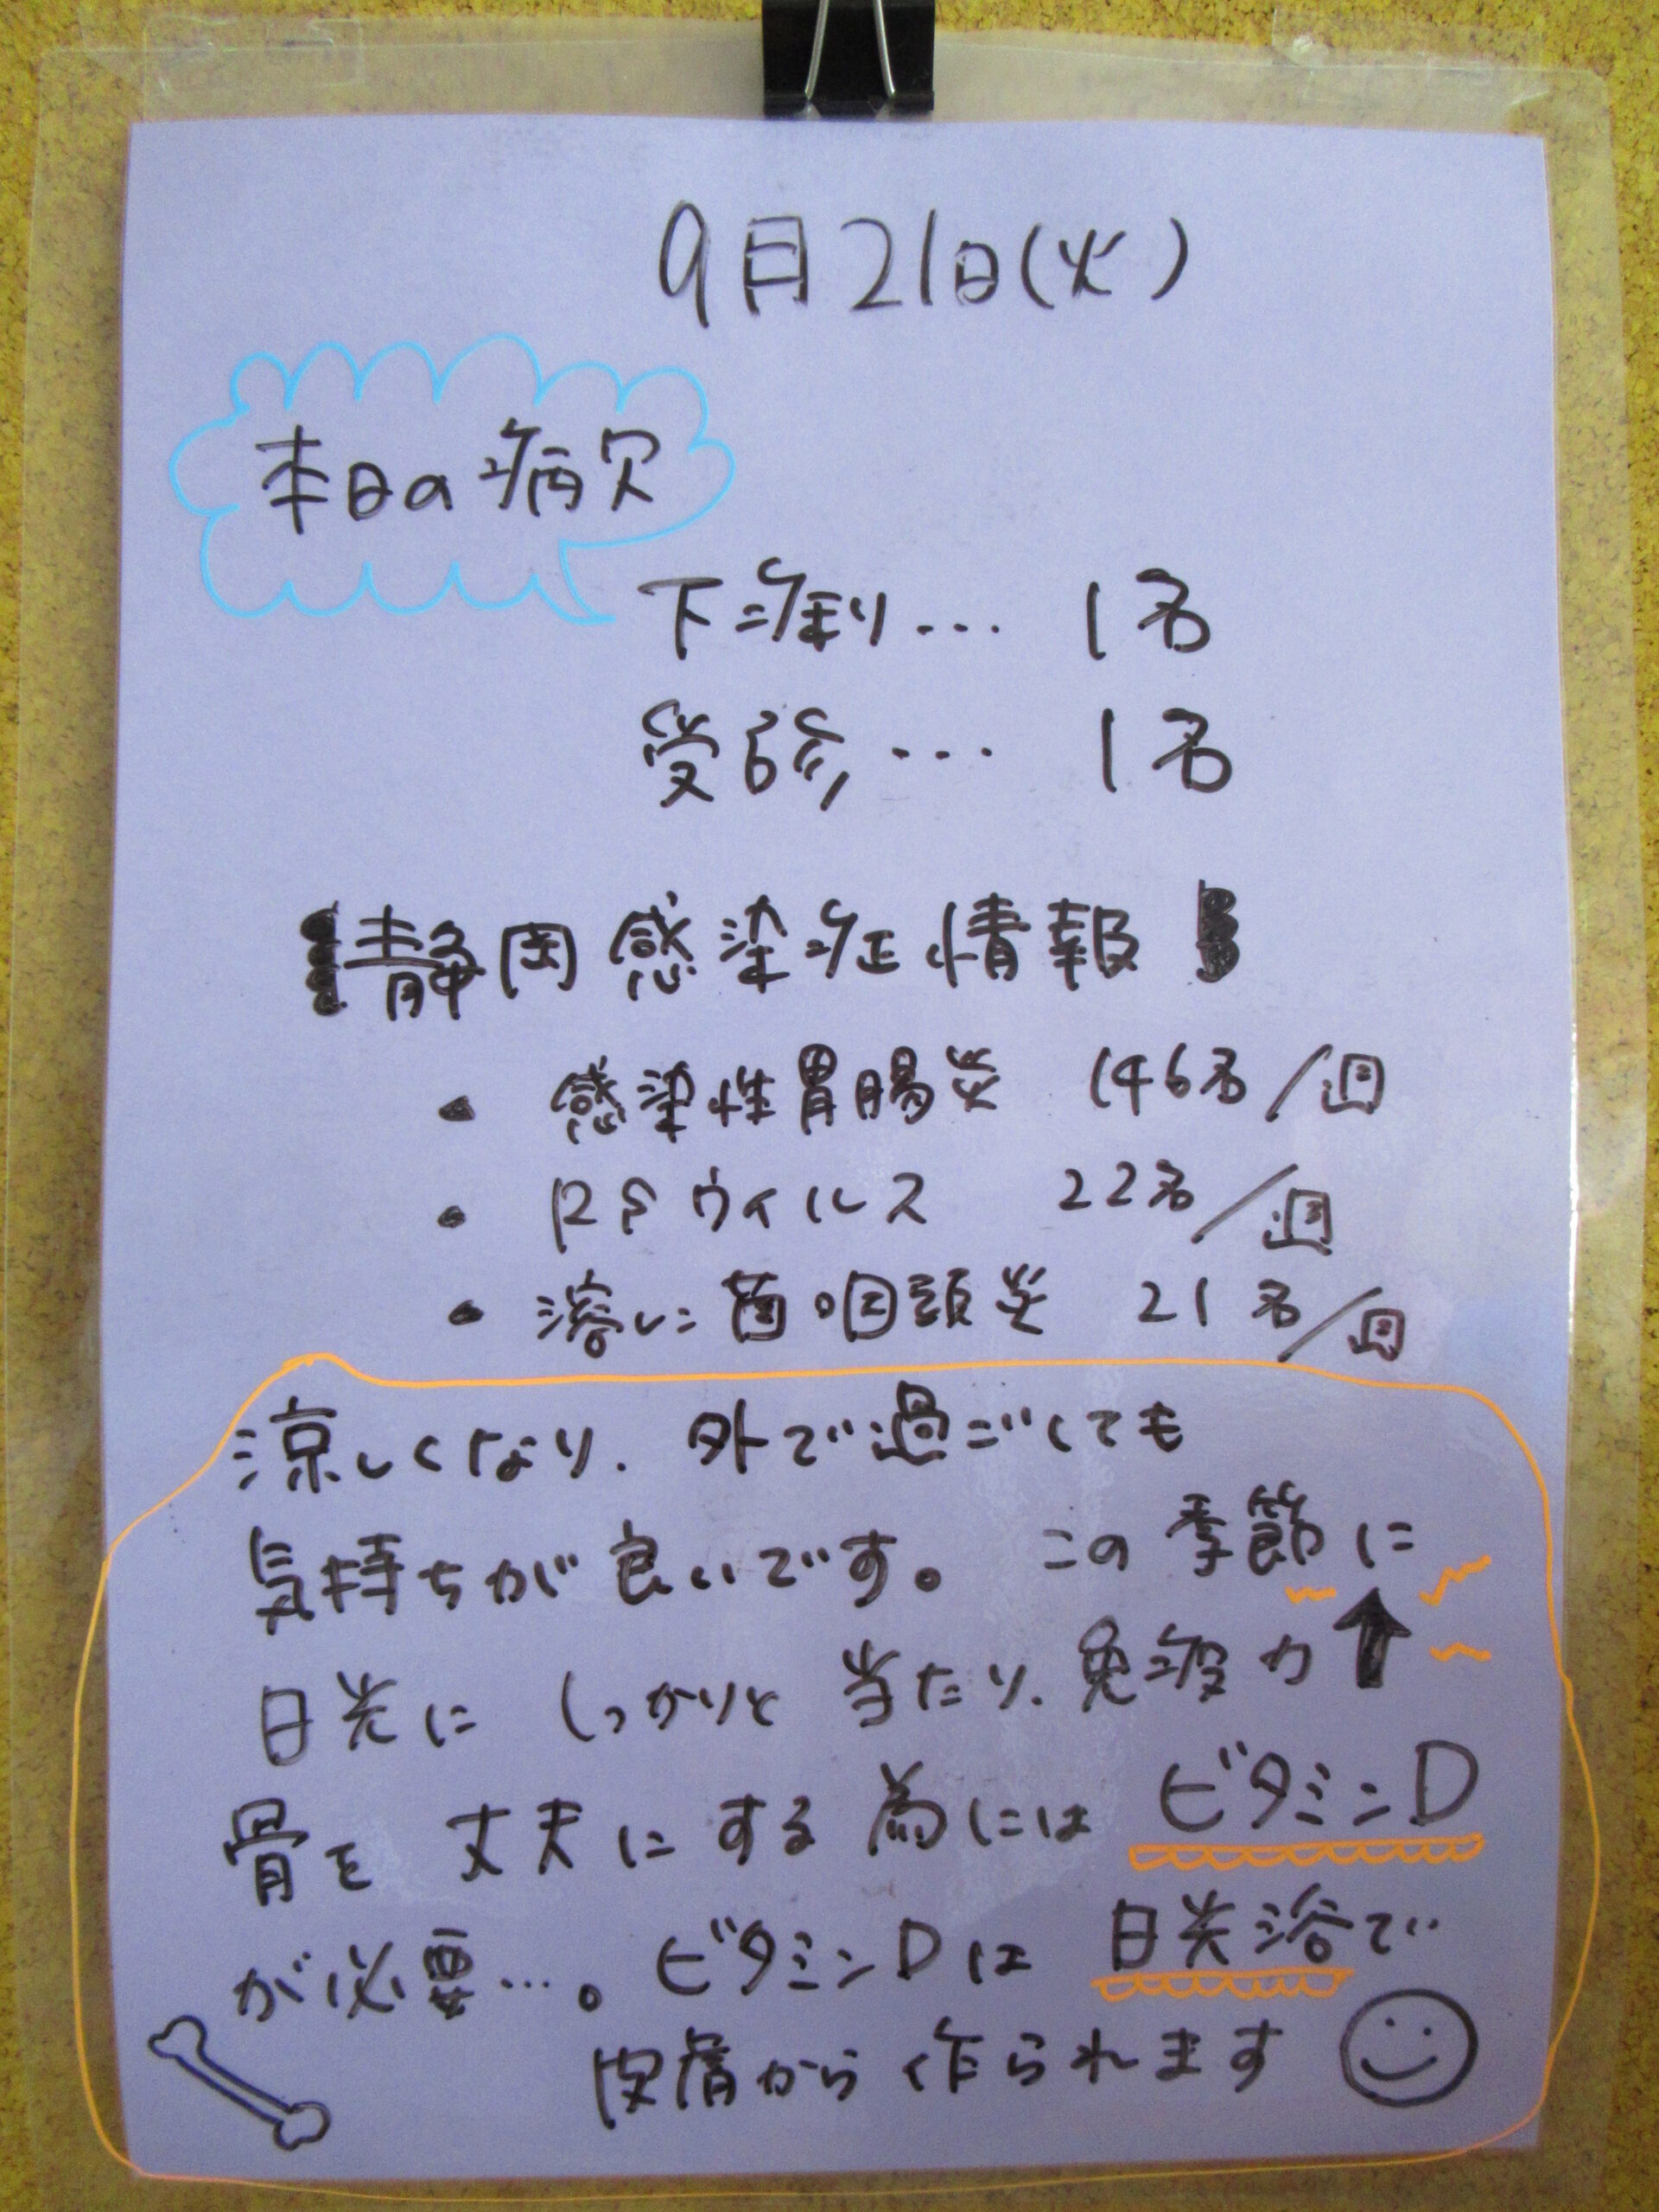 9月21日(火)
本日の病欠
下痢り… 1名
受診… 1名
静岡感染症情報
・ 感染性胃腸炎 146名/週
・ RSウィルス 22名/週
・ 溶レン菌咽頭炎 21名/週
涼しくなり、外で過ごしても
気持ちが良いです。この季節に
日光に しっかりと 当たり、免疫力↑
骨を 丈夫にする為には ビタミンD
が必要…。ビタミンDは 日光浴で
皮膚から 作られます